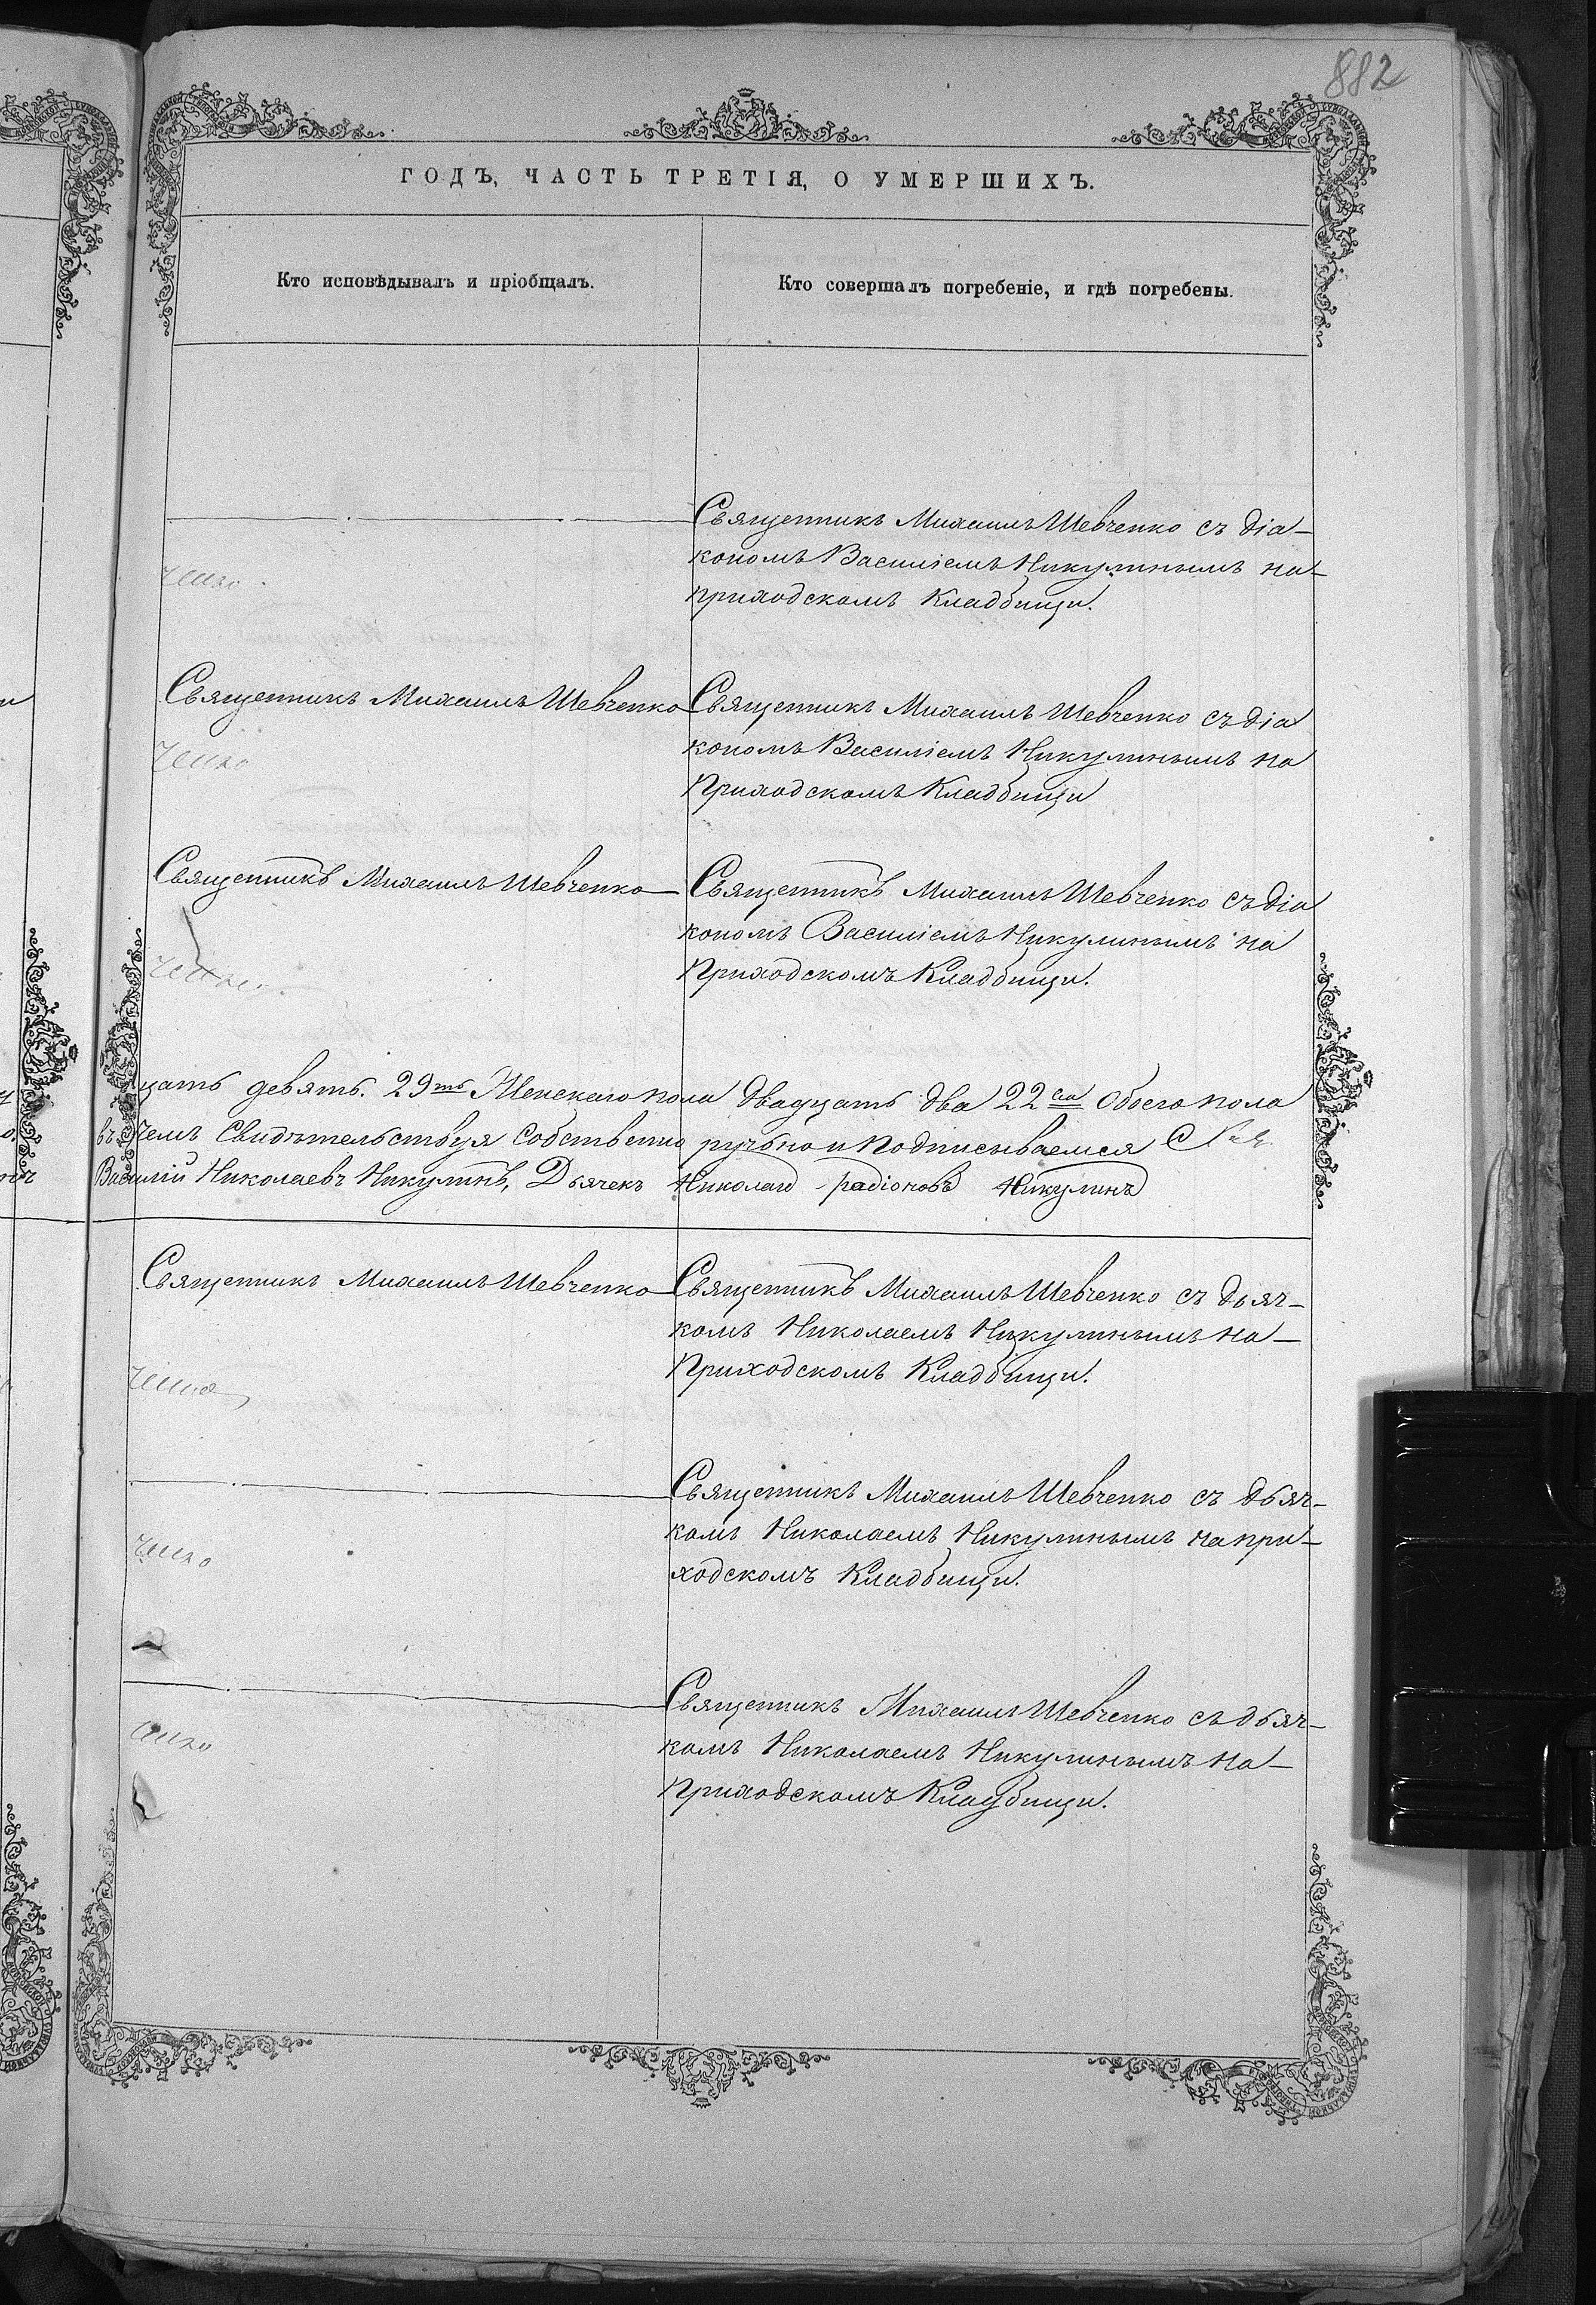 882
ГОДЪ, ЧАСТЬ ТРЕТІЯ, О УМЕРШИХЪ.
Кто исповѣдывалъ и пріобщалъ.
Кто совершалъ погребеніе, и гдѣ погребены.
Священникъ Михаилъ Шевченко съ діа-
кономъ Василіемъ Никулинымъ на-
приходскомъ Кладбищи.
Священникъ Михаилъ Шевченко
Священникъ Михаилъ Шевченко съ діа
кономъ Василіемъ Никулинымъ на
Приходскомъ Кладбищи
Священникъ Михаилъ Шевченко
Священникъ Михаилъ Шевченко съ діа
кономъ Василіемъ Никулинымъ на
Приходскомъ Кладбищи.
цать девять. 29ть Женскаго пола двадцать два 22 Обоего пола
въ чемъ Свидѣтельствуя Собственно ручьно и Подписываемся С
Василій Николаевъ Никулинъ, Дьячекъ Николай радіоновъ Никулинъ
Священникъ Михаилъ Шевченко
Священникъ Михаилъ Шевченко съ дьяч-
комъ Николаемъ Никулинымъ на-
Приходскомъ Кладбищи.
Священникъ Михаилъ Шевченко съ дьяч-
комъ Николаемъ Никулинымъ на при-
ходскомъ Кладбищи.
Священникъ Михаилъ Шевченко съ дьяч-
комъ Николаемъ Никулинымъ на-
Приходскомъ Кладбищи.